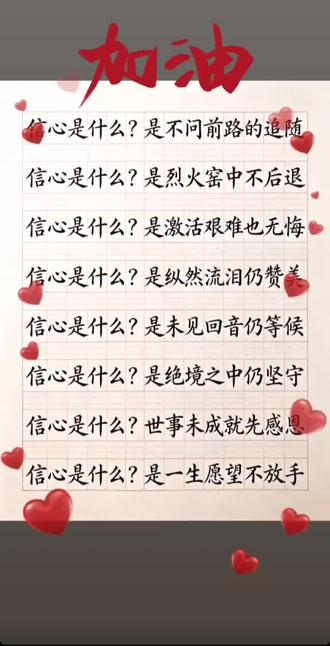 加油
信心是什么？是不问前路的追随
信心是什么？是烈火窑中不后退
信心是什么？是激活艰难也无悔
信心是什么？是纵然流泪仍赞美
信心是什么？是未见回音仍等候
信心是什么？是绝境之中仍坚守
信心是什么？世事未成就先感恩
信心是什么？是一生愿望不放手